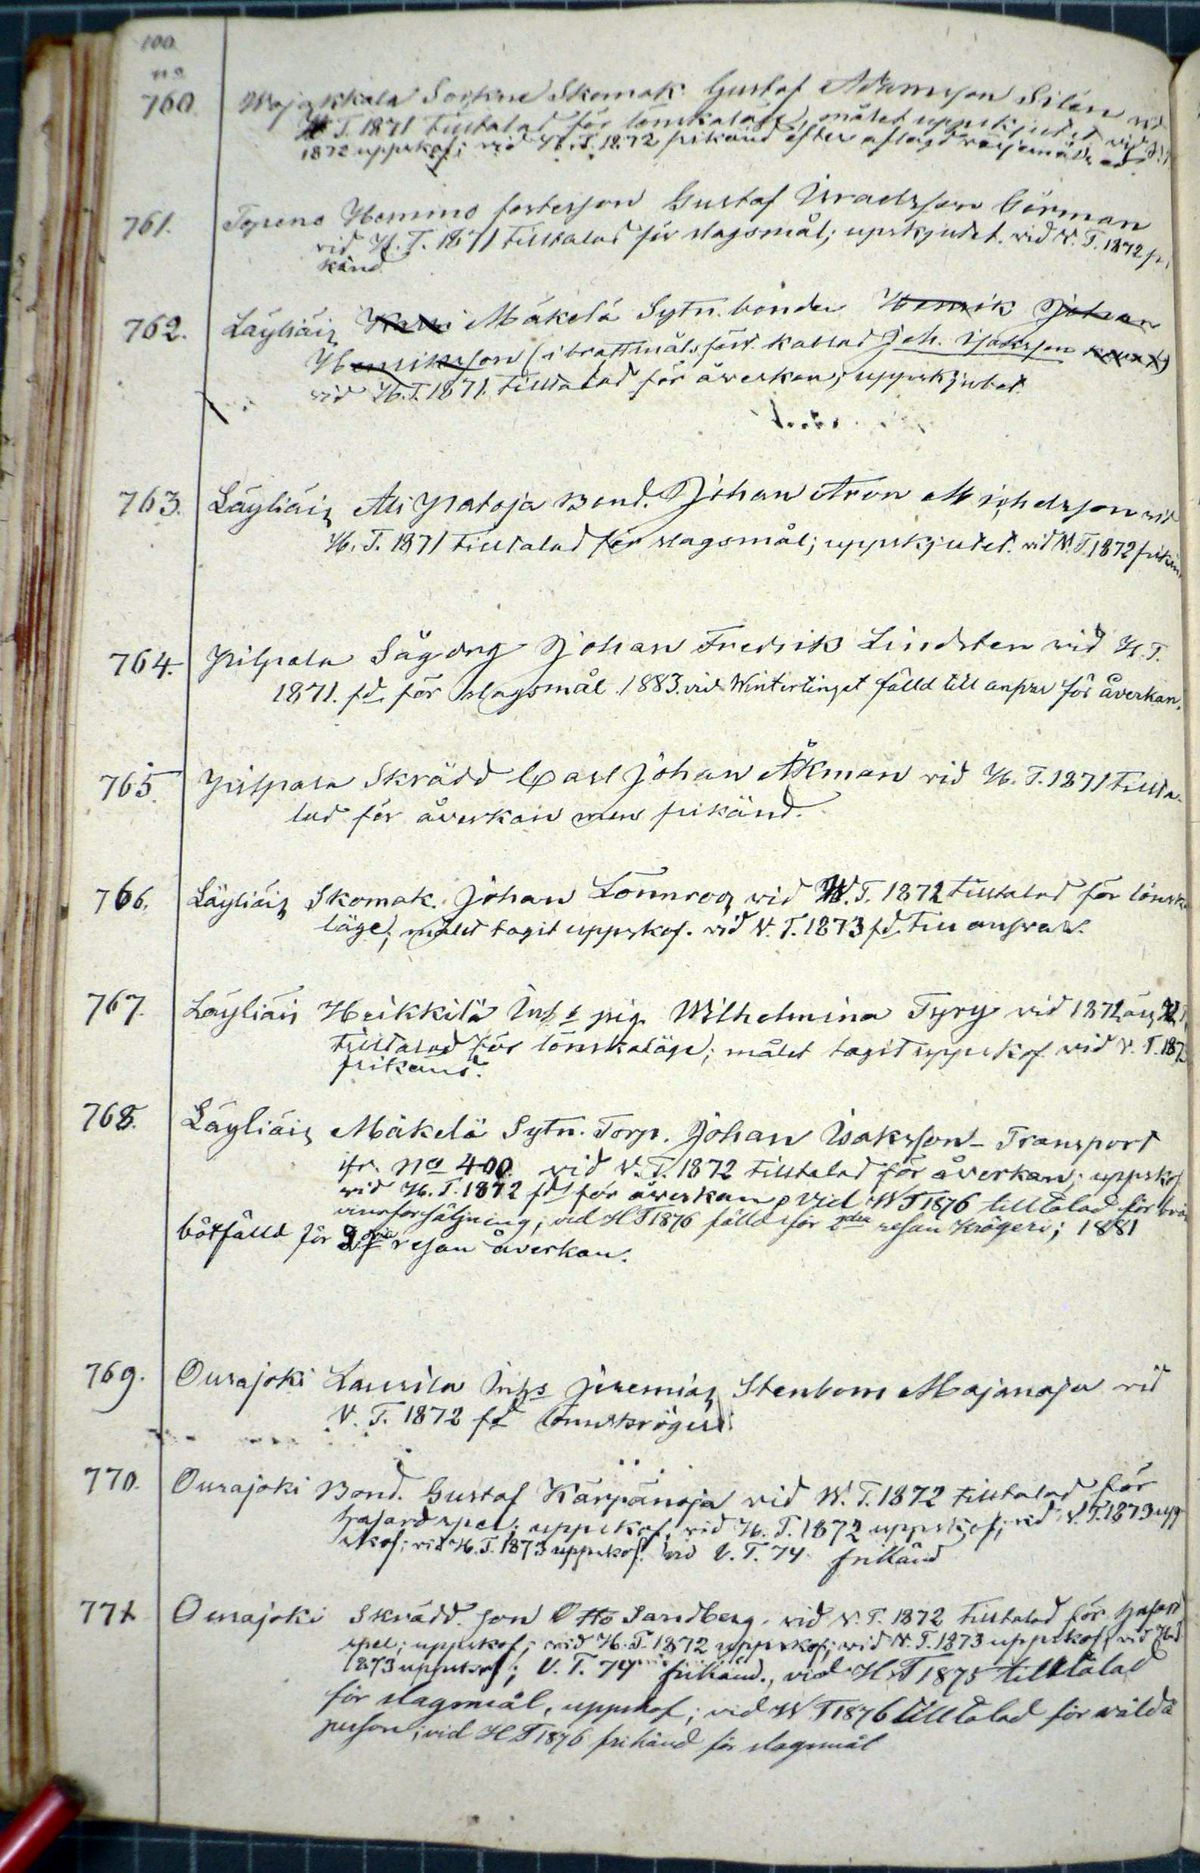 100
no
760. Wojakkala Sockne Skomak. Gustaf Adamsson Silén vid
H. T. 1871 tilltalad för lönskaläge, målet uppskjutet vid
1872 uppskof; vid H. T. 1872 frikänd efter aflagd värjemåls ed.
761. Topeno Hemmo festesson Gustaf Israelsson Görman
vid H. T. 1871 tilltalad för slagsmål; upskjutet. vid V. T. 1872 fri
känd
762. Läyliäis Mäkelä Sytn. bonde Henrik Johan
Henriksson (i brottmålsfört. kallad Joh. Isaksson
vid H. T. 1871 tilltalad för åverkan; uppskjutet
763. Läyliäis Ali Patoja Bond. Johan Aron Michelsson vid
H. T. 1871 tilltalad för slagsmål; uppskjutet. vid V. T. 1872 frikän
764. Pilpala Sågdrg Johan Fredrik Lindsten vid H. T.
1871. fd. för slagsmål. 1883. vid Wintertinget fälld till ansvar för åverkan.
765. Pilpala Skrädd Carl Johan Åkman vid H. T. 1871 tillta-
lad för åverkan men frikänd.
766. Läyliäis Skomak. Johan Lönnroos vid W. T. 1872 tilltalad för lönska
läge; målet tagit uppskof. vid V. T. 1873 fd. till ansvar.
767. Läyliäis Heikkilä Inhs pig. Wilhelmina Tyry vid 1872 års
tilltalad för lönskaläge; målet tagit uppskof vid V. T. 187
frikänd.
768. Läyliäis Mäkelä Sytn. Torp. Johan Isaksson – Transport
ifr. No 400. vid V. T. 1872 tilltalad för åverkan; uppskof
vid H. T. 1872 fd för åverkan, vid W T 1876 tilltalad för brän
vinsförsäljning; vid H T 1876 fälld för 2dra resan krögeri; 1881
bötfälld för resan åverkan.
769. Ourajoki Laurila Inhs Jeremias Stenbom Majanoja vid
V. T. 1872 fd lönnkrögeri.
770. Ourajoki Bond. Gustaf Kärpänoja vid W. T. 1872 tilltalad för
hasardspel; uppskof, vid H. T. 1872 uppskof; vid V. T. 1873 upp
skof; vid H. T. 1873 uppskof. vid V. T. 74 frikänd
771 Ourajoki Skrädd. son Otto Sandberg. vid V. T. 1872 tilltalad för hasard
spel; uppskof; vid H. T. 1872 uppskof; vid V. T. 1873 uppskof; vid H.
1873 uppskof; V. T. 74 frikänd., vid H T 1875 tilltalad
för slagsmål, uppskof; vid W T 1876 tilltalad för wåld å
person; vid H T 1876 frikänd för slagsmål